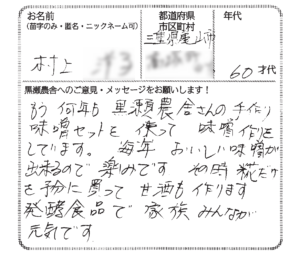 お名前
(苗字のみ・匿名・ニックネーム可)
都道府県
市区町村
年代
村上
三重県亀山市
60才代
黒瀬農舎へのご意見・メッセージをお願いします!
もう何年も黒瀬農舎さんの手作り
味噌セットを使って味噌作りを
しています。毎年おいしい味噌が
出来るので楽しみです その時糀だけ
を予分に買って甘酒も作ります
発酵食品で家族みんなが
元気です